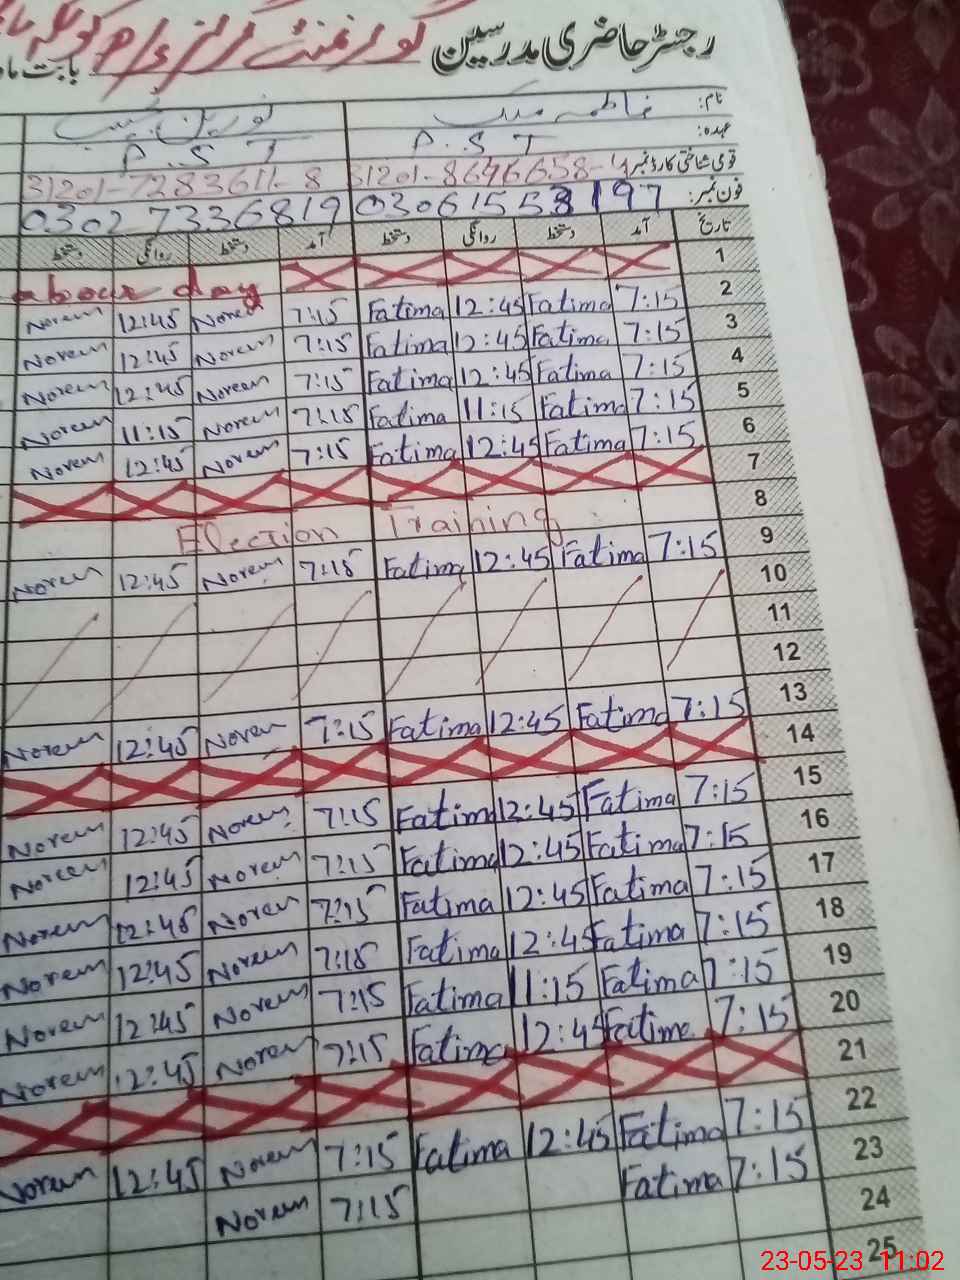 رجسٹر حاضری مدرسین گورنمنٹ بابت ماہ
نام: فاطمہ نورین
عہدہ: P.S.T P.S.T
قومی شناختی کارڈ نمبر 31201-8646658- 31201-7283611-8
فون نمبر: 03027336819
تاریخ آمد دستخط روانگی دستخط آمد دستخط روانگی دستخط
1 abour day
2 7:15 Fatima 12:45 Fatima 7:15 Noren 12:45 Noreen
3 7:15 Fatima 12:45 Fatima 7:15 Noreen 12:45 Noreen
4 7:15 Fatima 12:45 Fatima 7:15 Noreen 12:45 Noreen
5 7:15 Fatima 11:15 Fatima 7:15 Noreen 11:15 Noreen
6 7:15 Fatima 12:45 Fatima 7:15 Noreen 12:45 Noreen
7
8 Election Training
9 7:15 Fatima 12:45 Fatima 7:15 Noreen 12:45 Noreen
10
11
12
13 7:15 Fatima 12:45 Fatima 7:15 Noreen 12:45 Noreen
14
15 7:15 Fatima 12:45 Fatima 7:15 Noreen 12:45 Noreen
16 7:15 Fatima 12:45 Fatima 7:15 Noreen 12:45 Noreen
17 7:15 Fatima 12:45 Fatima 7:15 Noreen 12:45 Noreen
18 7:15 Fatima 12:45 Fatima 7:15 Noreen 12:45 Noreen
19 7:15 Fatima 11:15 Fatima 7:15 Noreen 12:45 Noreen
20 7:15 Fatima 12:45 Fatima 7:15 Noreen 12:45 Noreen
21
22 7:15 Fatima 12:45 Fatima 7:15 Noreen 12:45 Noreen
23 7:15 Fatima 7:15 Noreen
24
25
23-05-23 11:02